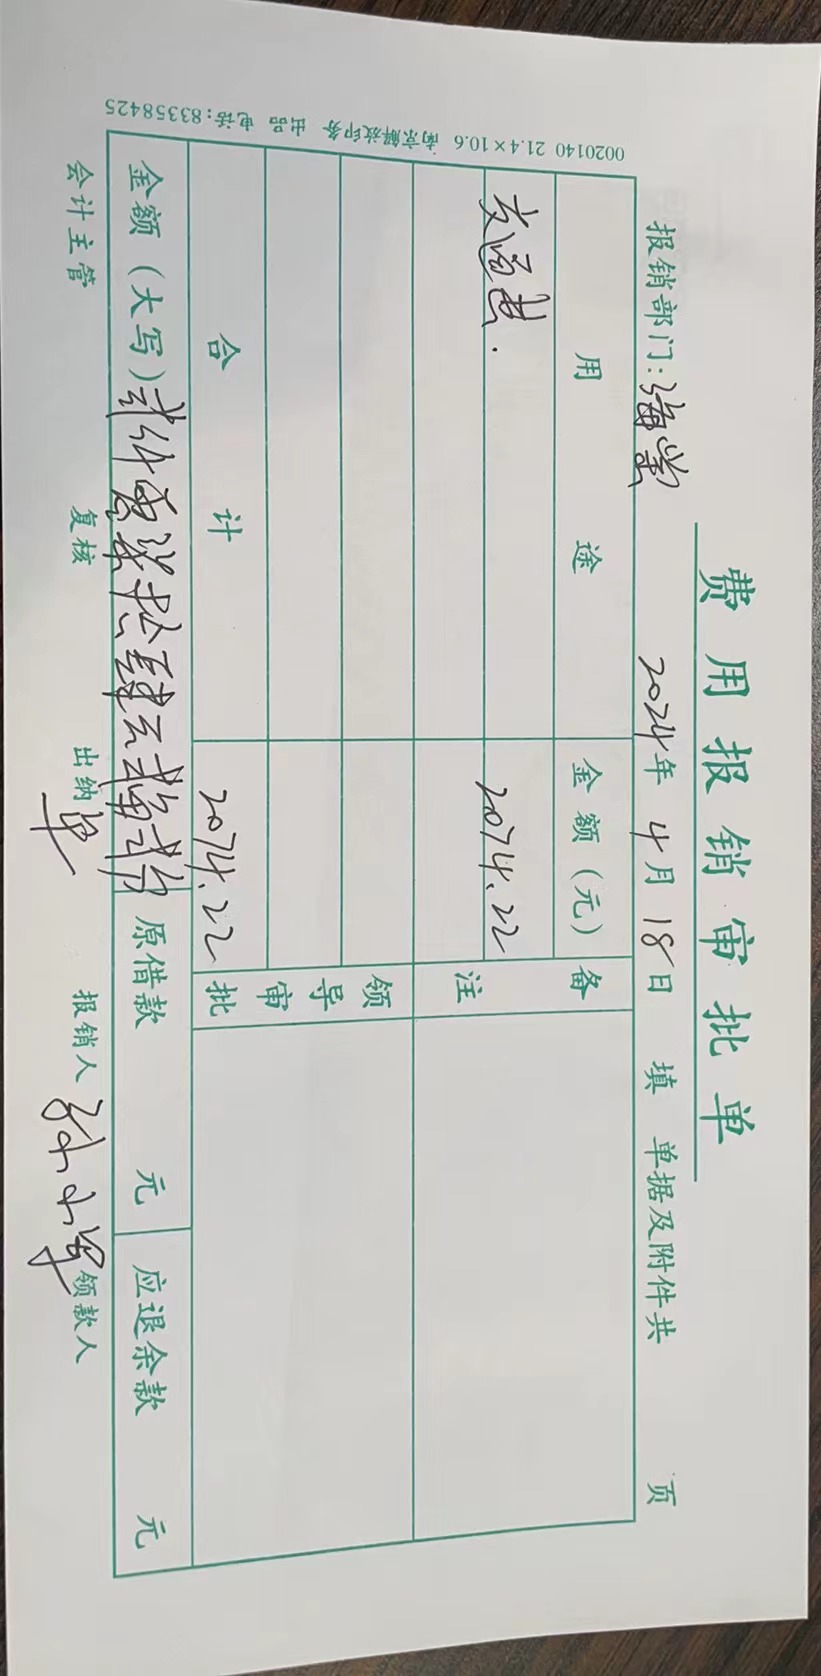 费用报销审批单
报销部门: 2024年 4月 18日 填 单据及附件共 页
用途 金额(元) 备注
交通费. 2074.22
领导审批
合计 2074.22
金额(大写)贰仟零柒拾肆元贰角贰分 原借款 元 应退余款 元
会计主管 复核 出纳 单 报销人 孙小军 领款人
0020140 21.4×10.6 南京解放印务 出品 电话:83358425